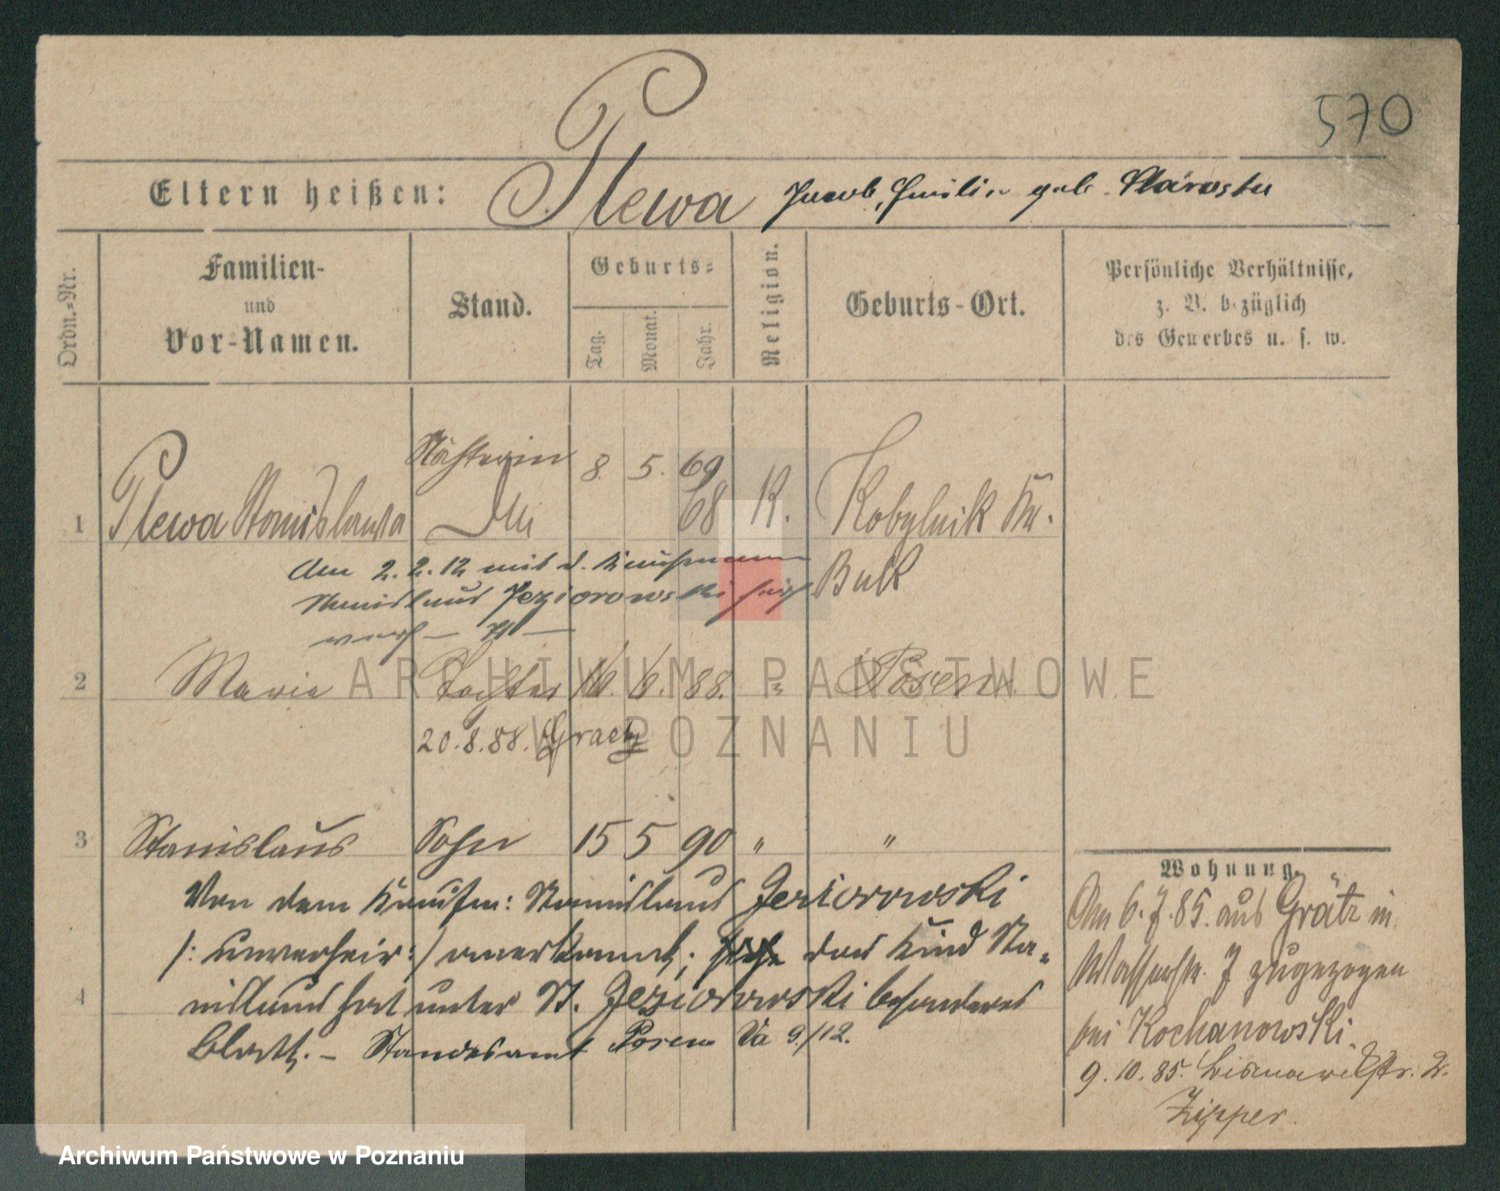 570
Eltern heißen: Plewa Jacob, Emilie geb. Starosta
Ordn.-Nr.
Familien-
und
Vor-Namen.
Stand.
Geburts-
Tag.
Monat.
Jahr.
Religion.
Geburts-Ort.
Persönliche Verhältnisse,
z. B. bezüglich
des Gewerbes u. s. w.
Nähterin 8. 5. 69
1 Plewa Stanislawa 68 K. Kobylnik Kr.
Am 2.2.12 mit d. Kaufmann Buk
Stanislaus Jeziorowski sich
verh
2 Marie Tochter 16. 6. 88. " Posen
20.8.88. Graetz
3 Stanislaus Sohn 15 5 90 " "
Von dem Kaufm: Stanislaus Jeziorowski
/: unverheir :/ anerkannt; das Kind Sta-
4 nislaus hat unter St. Jeziorowski besonderes
Blatt. – Standesamt Posen Va 9/12.
Wohnung.
Am 6.7.85. aus Grätz in
Wasserstr. 7 zugezogen
bei Kochanowski.
9.10.85. Bismarckstr. 2.
Zipper.
ARCHIWUM PAŃSTWOWE
W POZNANIU
Archiwum Państwowe w Poznaniu